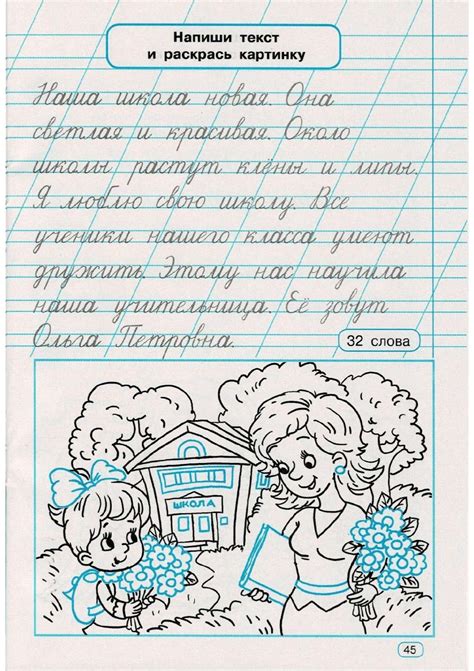 Напиши текст
и раскрась картинку
Наша школа новая. Она
светлая и красивая. Около
школы растут клёны и липы.
Я люблю свою школу. Все
ученики нашего класса умеют
дружить. Этому нас научила
наша учительница. Её зовут
Ольга Петровна.
32 слова
ШКОЛА
45